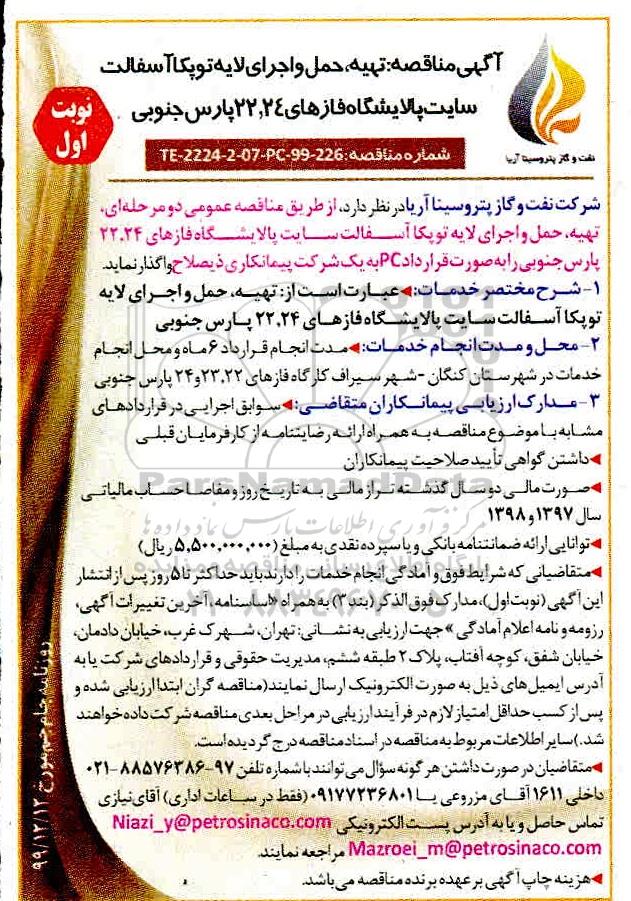 آگهی مناقصه: تهیه، حمل و اجرای لایه توپکا آسفالت
سایت پالایشگاه فازهای ۲۲,۲۴ پارس جنوبی
نوبت
اول
شماره مناقصه: TE-2224-2-07-PC-99-226
نفت و گاز پتروسینا آریا
شرکت نفت و گاز پتروسینا آریا در نظر دارد، از طریق مناقصه عمومی دو مرحله‌ای،
تهیه، حمل و اجرای لایه توپکا آسفالت سایت پالایشگاه فازهای ۲۲,۲۴
پارس جنوبی را به صورت قرارداد PC به یک شرکت پیمانکاری ذیصلاح واگذار نماید.
۱- شرح مختصر خدمات: ◄عبارت است از: تهیه، حمل و اجرای لایه
توپکا آسفالت سایت پالایشگاه فازهای ۲۲,۲۴ پارس جنوبی
۲- محل و مدت انجام خدمات: ◄مدت انجام قرارداد ۶ ماه و محل انجام
خدمات در شهرستان کنگان -شهر سیراف کارگاه فازهای ۲۳,۲۲ و ۲۴ پارس جنوبی
۳- مدارک ارزیابی پیمانکاران متقاضی: ◄سوابق اجرایی در قراردادهای
مشابه با موضوع مناقصه به همراه ارائه رضایتنامه از کارفرمایان قبلی
◄داشتن گواهی تأیید صلاحیت پیمانکاران
◄صورت مالی دو سال گذشته تراز مالی به تاریخ روز و مفاصا حساب مالیاتی
سال ۱۳۹۷ و ۱۳۹۸
◄توانایی ارائه ضمانتنامه بانکی و یا سپرده نقدی به مبلغ (۵,۵۰۰,۰۰۰,۰۰۰ ریال)
◄متقاضیانی که شرایط فوق و آمادگی انجام خدمات را دارند باید حداکثر تا ۵ روز پس از انتشار
این آگهی (نوبت اول)، مدارک فوق الذکر (بند ۳) به همراه «اساسنامه، آخرین تغییرات آگهی،
رزومه و نامه اعلام آمادگی» جهت ارزیابی به نشانی: تهران، شهرک غرب، خیابان دادمان،
خیابان شفق، کوچه آفتاب، پلاک ۲ طبقه ششم، مدیریت حقوقی و قراردادهای شرکت یا به
آدرس ایمیل‌های ذیل به صورت الکترونیک ارسال نمایند (مناقصه گران ابتدا ارزیابی شده و
پس از کسب حداقل امتیاز لازم در فرآیند ارزیابی در مراحل بعدی مناقصه شرکت داده خواهند
شد.) سایر اطلاعات مربوط به مناقصه در اسناد مناقصه درج گردیده است.
◄متقاضیان در صورت داشتن هر گونه سؤال می‌توانند با شماره تلفن ۹۷-۸۸۵۷۶۳۸۶-۰۲۱
داخلی ۱۶۱۱ آقای مزروعی یا ۰۹۱۷۷۲۳۶۸۰۱ (فقط در ساعات اداری) آقای نیازی
تماس حاصل و یا به آدرس پست الکترونیکی Niazi_y@petrosinaco.com
Mazroei_m@petrosinaco.com مراجعه نمایند.
◄هزینه چاپ آگهی بر عهده برنده مناقصه می‌باشد.
روزنامه جام جم مورخ ۹۹/۱۲/۱۲
ParsNamadData
مرکز فرآوری اطلاعات پارس نماد داده ها